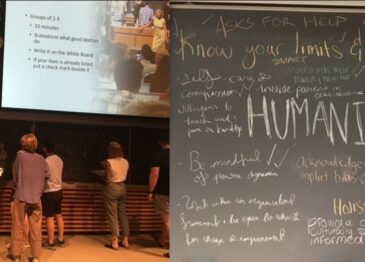 • Groups of 2-3
• 15 minutes
• Brainstorm what good doctors do
• Write it on the White Board
• If your item is already listed, put a check mark beside it
ASKS FOR HELP
Know your limits &
SMART
Self-care &
compassion
Include patient in
decisions
willingness to
teach and
HUMANI
• Be mindful
of power dynamics
Acknowledge
implicit bias
• Work within an organizational
framework + be open to
for change & improvement
Holis
Provide a
culturally s
informed